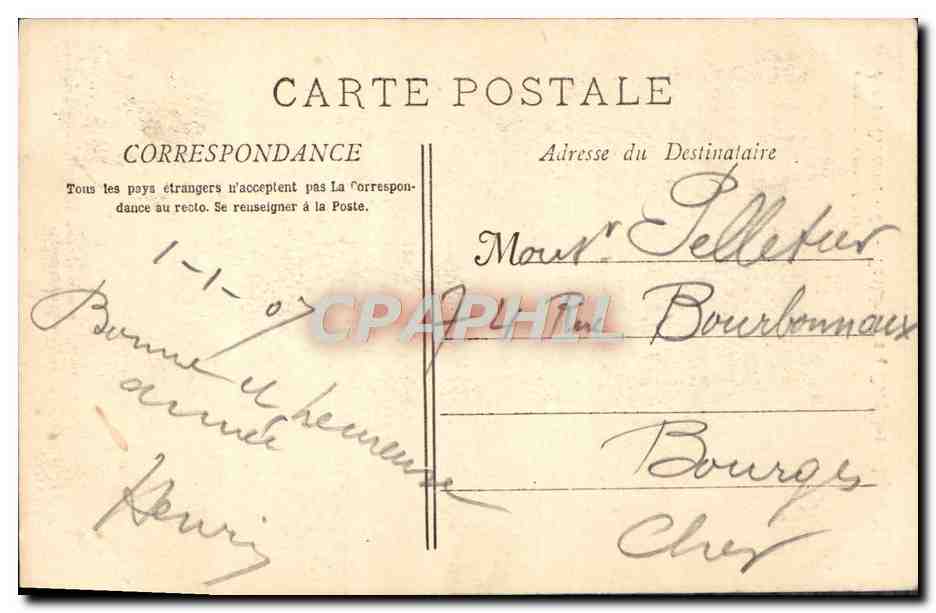 CARTE POSTALE
CORRESPONDANCE
Tous les pays étrangers n'acceptent pas La Correspon-
dance au recto. Se renseigner à la Poste.
1-1-07
Bonne et heureuse
année
Henri
Adresse du Destinataire
Monsr. Pelletier
74 Rue Bourbonnoux
Bourges
Cher
CPAPHIL